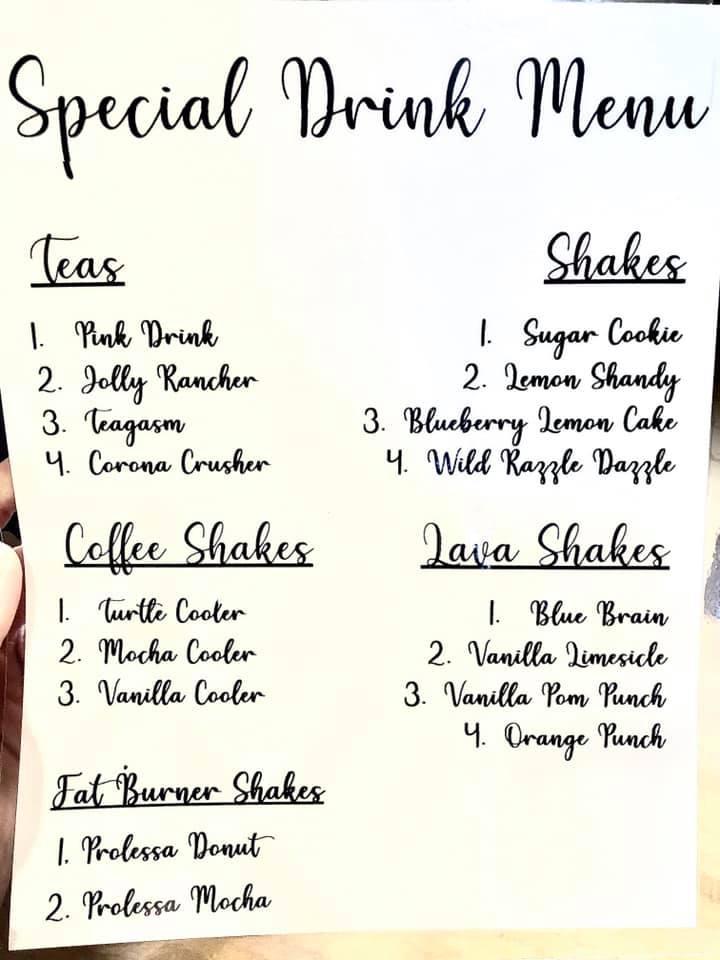 Special Drink Menu
Teas
1. Pink Drink
2. Jolly Rancher
3. Teagasm
4. Corona Crusher
Shakes
1. Sugar Cookie
2. Lemon Shandy
3. Blueberry Lemon Cake
4. Wild Razzle Dazzle
Coffee Shakes
1. Turtle Cooler
2. Mocha Cooler
3. Vanilla Cooler
Lava Shakes
1. Blue Brain
2. Vanilla Limesicle
3. Vanilla Pom Punch
4. Orange Punch
Fat Burner Shakes
1. Prolessa Donut
2. Prolessa Mocha